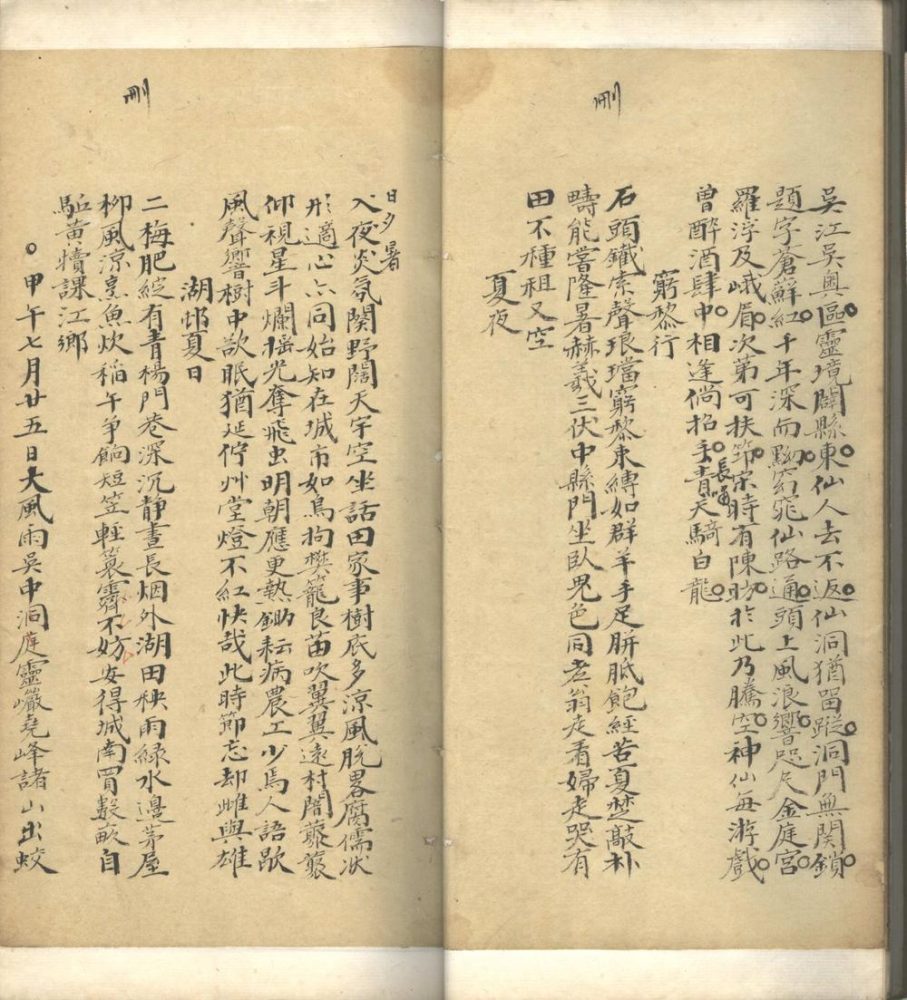 刪
吳江吳奧區靈境闢縣東仙人去不返仙洞猶留蹤洞門無関鎖
題字蒼蘚紅千年深而黝窈窕仙路通頭上風浪響咫尺金庭宮
羅浮及峨眉次第可扶笻宋時有陳昉於此乃騰空神仙每游戲
曾醉酒肆中相逢倘招手青天騎白龍
長嘯
窮黎行
石頭鐵索聲琅璫窮黎束縛如群羊手足胼胝飽經苦夏楚敲朴
疇能當隆暑赫羲三伏中縣門坐臥鬼色同老翁走看婦走哭有
田不種租又空
夏夜
刪
日夕暑
入夜炎氛闋野闊天宇空坐話田家事樹底多涼風脫畧腐儒狀
形適心亦同始知在城市如鳥拘樊籠良苗吹翼翼遠村闇蘷蘷
仰視星斗爛搖光奪飛虫明朝應更熱鋤耘病農工少焉人語歇
風聲響樹中欲眠猶延佇艸堂燈不紅快哉此時節忘却雌與雄
湖邨夏日
二梅肥綻有青楊門巷深沉靜晝長烟外湖田秧雨綠水邊茅屋
柳風涼烹魚炊稻午爭餉短笠輕簑霽不妨安得城南買數畝自
駈黃犢課江鄉
甲午七月廿五日大風雨吳中洞庭靈巖堯峰諸山出蛟